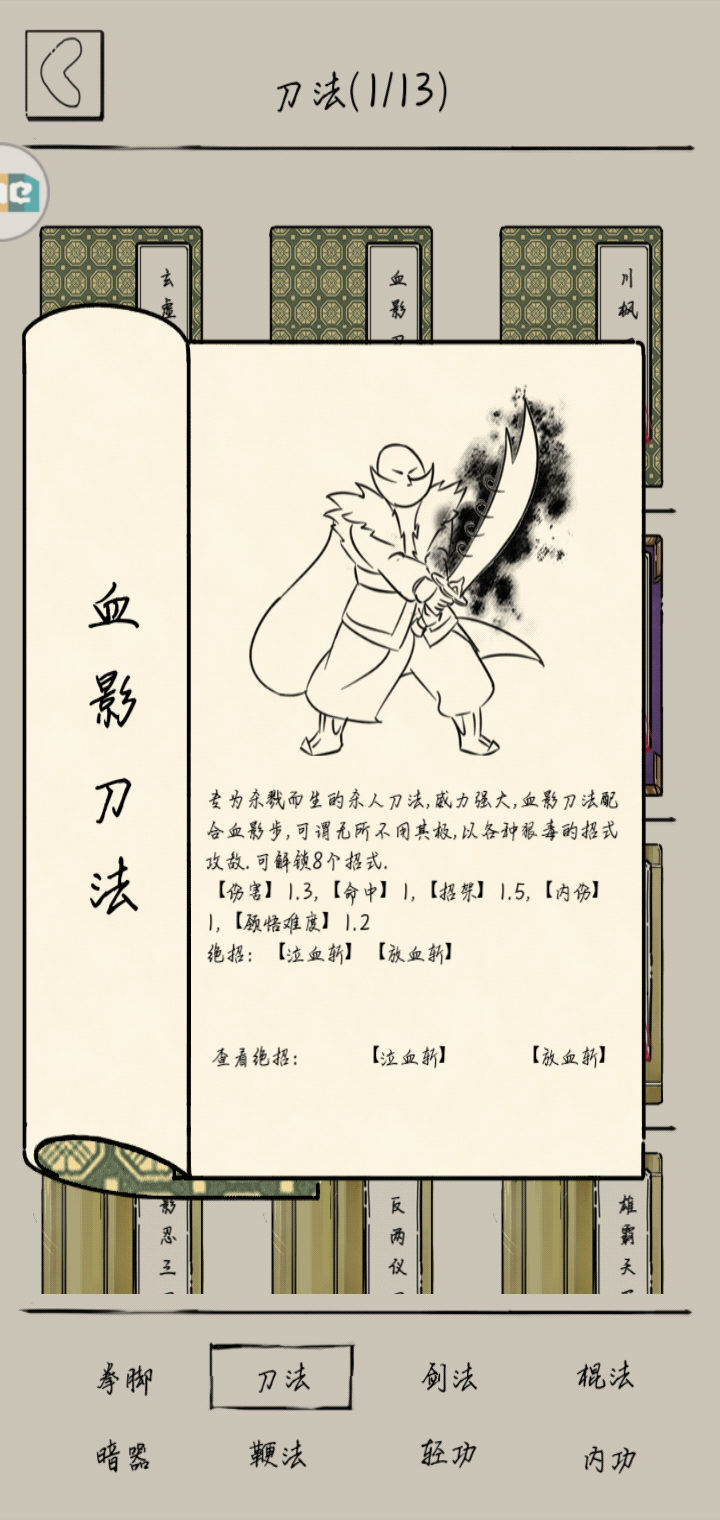 刀法(1/13)
玄虚
血影刀
川枫
血影刀法
专为杀戮而生的杀人刀法,威力强大,血影刀法配
合血影步,可谓无所不用其极,以各种狠毒的招式
攻敌.可解锁8个招式.
【伤害】 1.3, 【命中】 1, 【招架】 1.5, 【内伤】
1, 【领悟难度】 1.2
绝招: 【泣血斩】 【放血斩】
查看绝招: 【泣血斩】 【放血斩】
影忍三
反两仪
雄霸天
拳脚 刀法 剑法 棍法
暗器 鞭法 轻功 内功